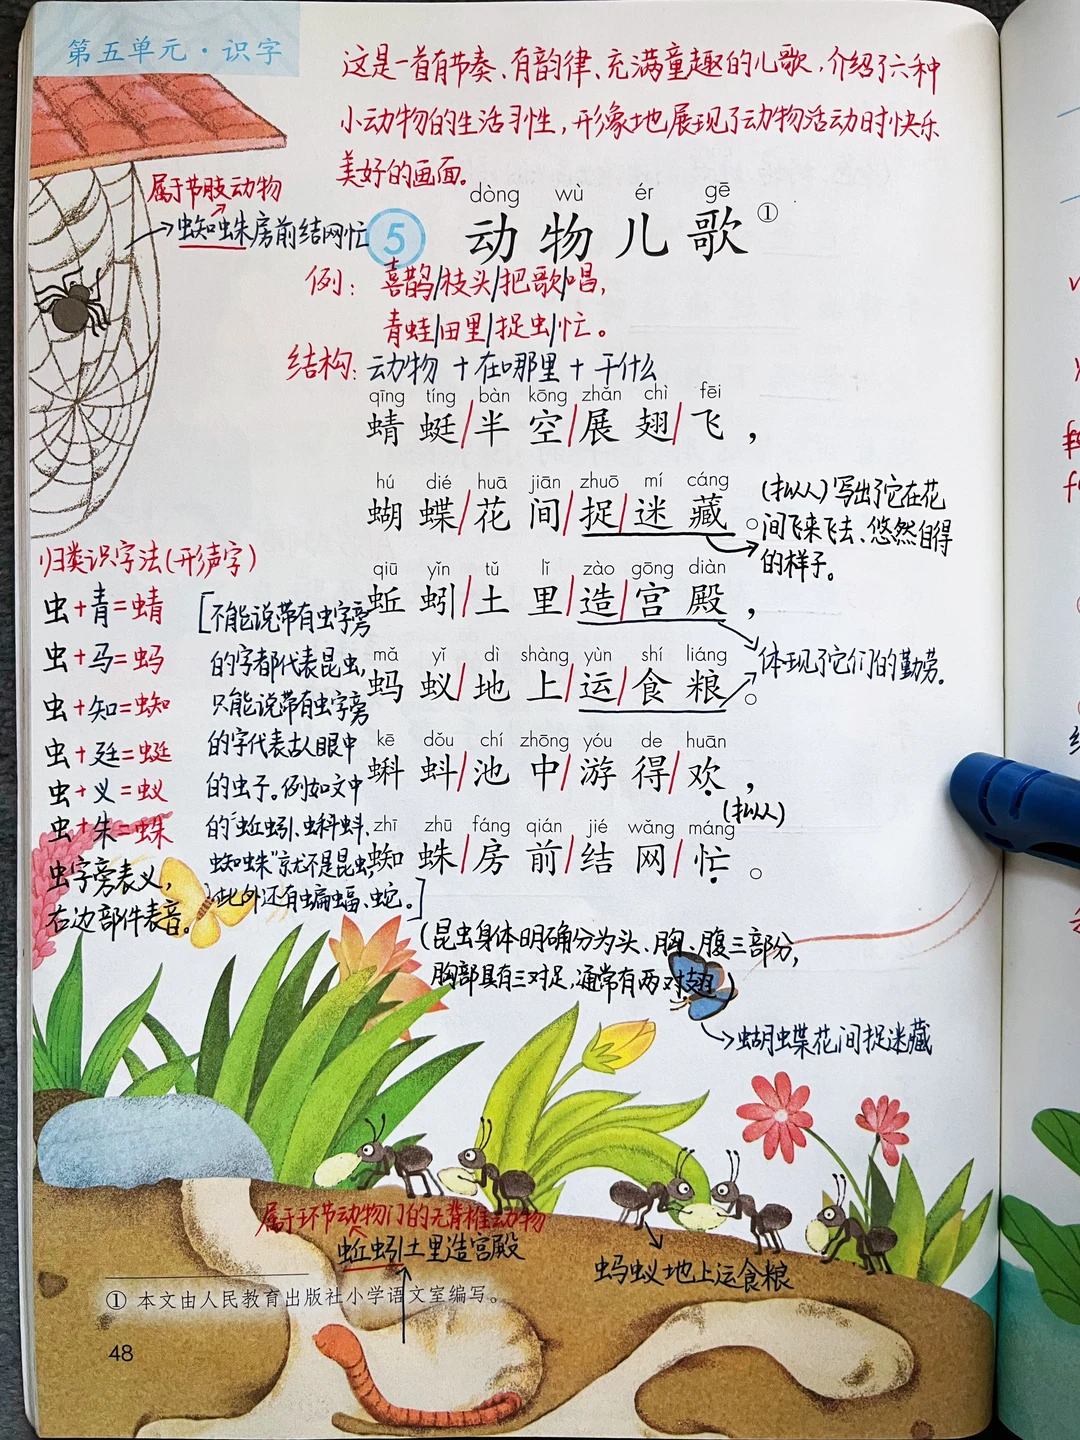 第五单元·识字
这是一首有节奏、有韵律、充满童趣的儿歌,介绍了六种
小动物的生活习性,形象地展现了动物活动时快乐
美好的画面。
属于节肢动物
蜘蛛房前结网忙
dòng wù ér gē
5 动物儿歌①
例:喜鹊/枝头/把歌/唱,
青蛙/田里/捉虫/忙。
结构:动物+在哪里+干什么
qīng tíng bàn kōng zhǎn chì fēi
蜻蜓/半空/展翅/飞,
hú dié huā jiān zhuō mí cáng
蝴蝶/花间/捉/迷藏。
(拟人)写出了它在花
间飞来飞去、悠然自得
的样子。
qiū yǐn tǔ lǐ zào gōng diàn
蚯蚓/土里/造/宫殿,
mǎ yǐ dì shàng yùn shí liáng
蚂蚁/地上/运/食粮。
体现了它们的勤劳。
kē dǒu chí zhōng yóu de huān
蝌蚪/池中/游得/欢,
(拟人)
zhī zhū fáng qián jié wǎng máng
蜘蛛/房前/结网/忙。
归类识字法(形声字)
虫+青=蜻
虫+马=蚂
虫+知=蜘
虫+廷=蜓
虫+义=蚁
虫+朱=蛛
虫字旁表义,
右边部件表音。
[不能说带有虫字旁
的字都代表昆虫,
只能说带有虫字旁
的字代表古人眼中
的虫子。例如文中
的“蚯蚓、蝌蚪、
蜘蛛”就不是昆虫,
此外还有蝙蝠、蛇。]
(昆虫身体明确分为头、胸、腹三部分,
胸部具有三对足,通常有两对翅)
蝴蝶花间捉迷藏
属于环节动物门的无脊椎动物
蚯蚓土里造宫殿
蚂蚁地上运食粮
① 本文由人民教育出版社小学语文室编写。
48